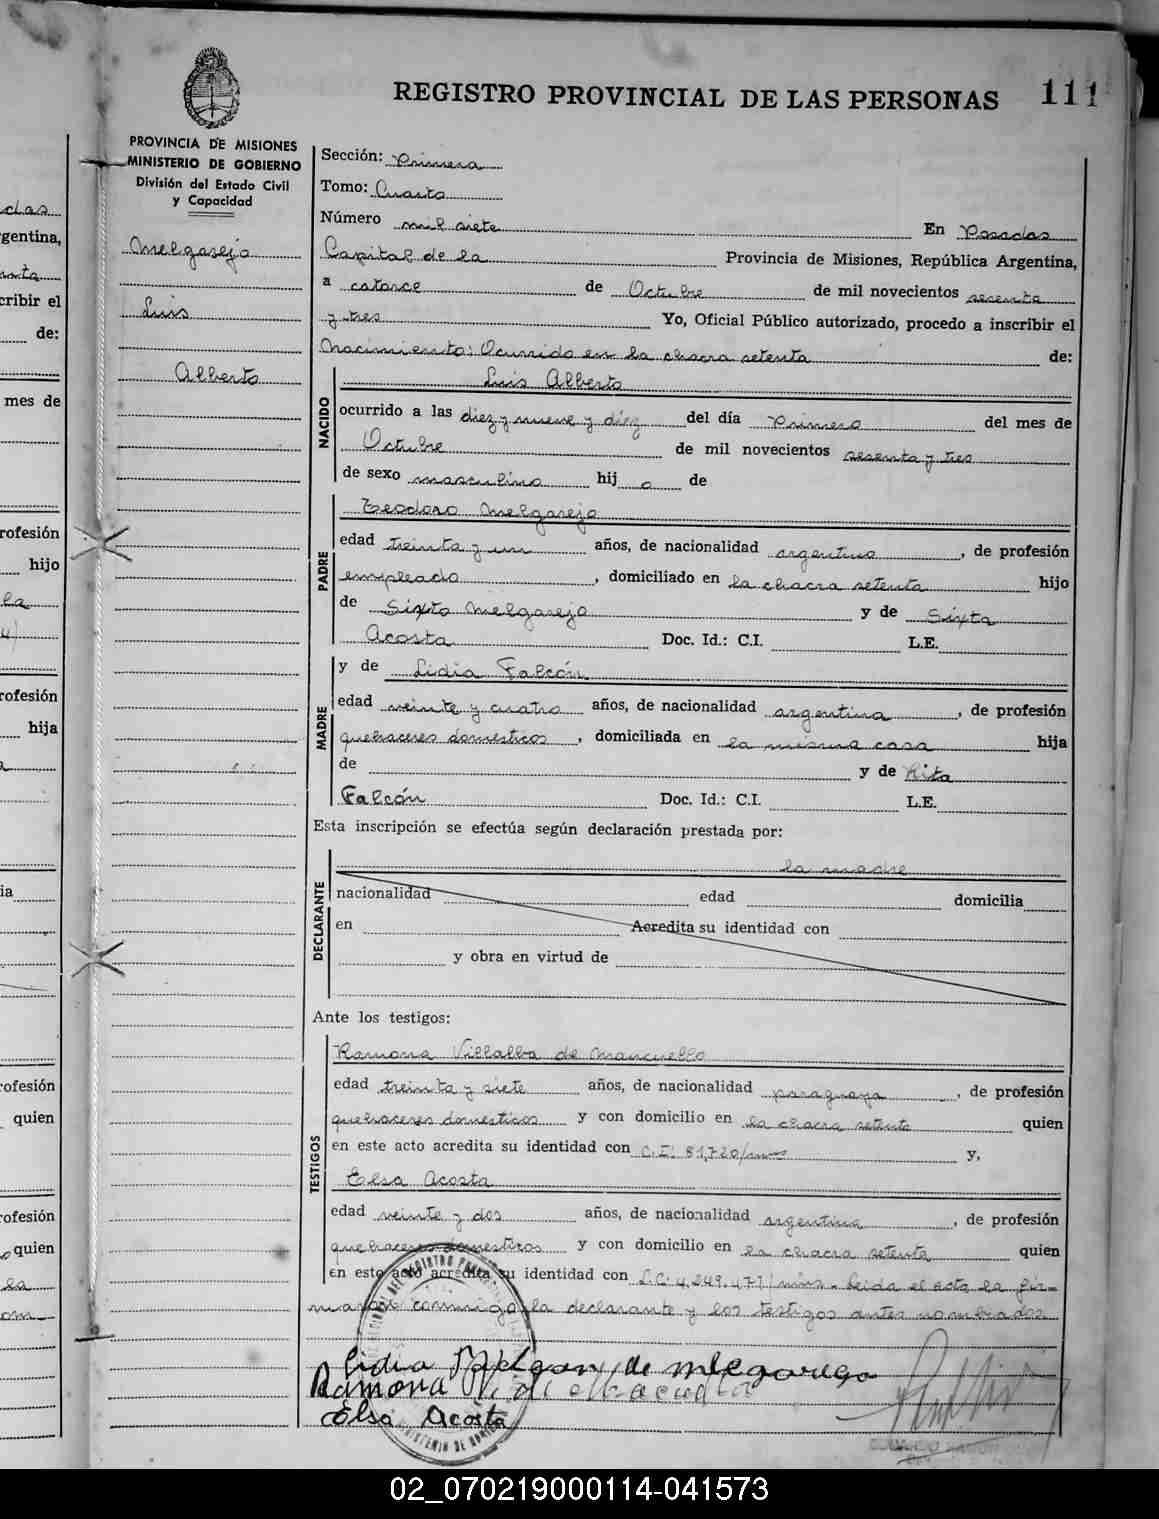 REGISTRO PROVINCIAL DE LAS PERSONAS 111
PROVINCIA DE MISIONES
MINISTERIO DE GOBIERNO
División del Estado Civil
y Capacidad
Melgarejo
Luis
Alberto
Sección: Primera
Tomo: Cuarto
Número mil siete En Posadas
Capital de la Provincia de Misiones, República Argentina,
a catorce de Octubre de mil novecientos sesenta
y tres Yo, Oficial Público autorizado, procedo a inscribir el
Nacimiento: Ocurrido en la chacra setenta de:
NACIDO
Luis Alberto
ocurrido a las diez y nueve y diez del día Primero del mes de
Octubre de mil novecientos sesenta y tres
de sexo masculino hij o de
PADRE
Teodoro Melgarejo
edad treinta y un años, de nacionalidad argentino, de profesión
empleado, domiciliado en la chacra setenta hijo
de Sixto Melgarejo y de Sixta
Acosta Doc. Id.: C.I. L.E.
MADRE
y de Lidia Falcón
edad veinte y cuatro años, de nacionalidad argentina, de profesión
quehaceres domesticos, domiciliada en la misma casa hija
de y de Rita
Falcón Doc. Id.: C.I. L.E.
Esta inscripción se efectúa según declaración prestada por:
DECLARANTE
la madre
nacionalidad edad domicilia
en Acredita su identidad con
y obra en virtud de
Ante los testigos:
TESTIGOS
Ramona Villalba de Mancuello
edad treinta y siete años, de nacionalidad paraguaya, de profesión
quehaceres domesticos y con domicilio en la chacra setenta quien
en este acto acredita su identidad con C.I. 81.720/mnes y,
Elsa Acosta
edad veinte y dos años, de nacionalidad argentina, de profesión
quehaceres domesticos y con domicilio en la chacra setenta quien
en este acto acredita su identidad con L.C. 4.249.477/mnes. Leida el acta la fir-
maron conmigo la declarante y los testigos antes nombrados
Lidia Falcon de Melgarejo
Ramona
Elsa Acosta
02_070219000114-041573